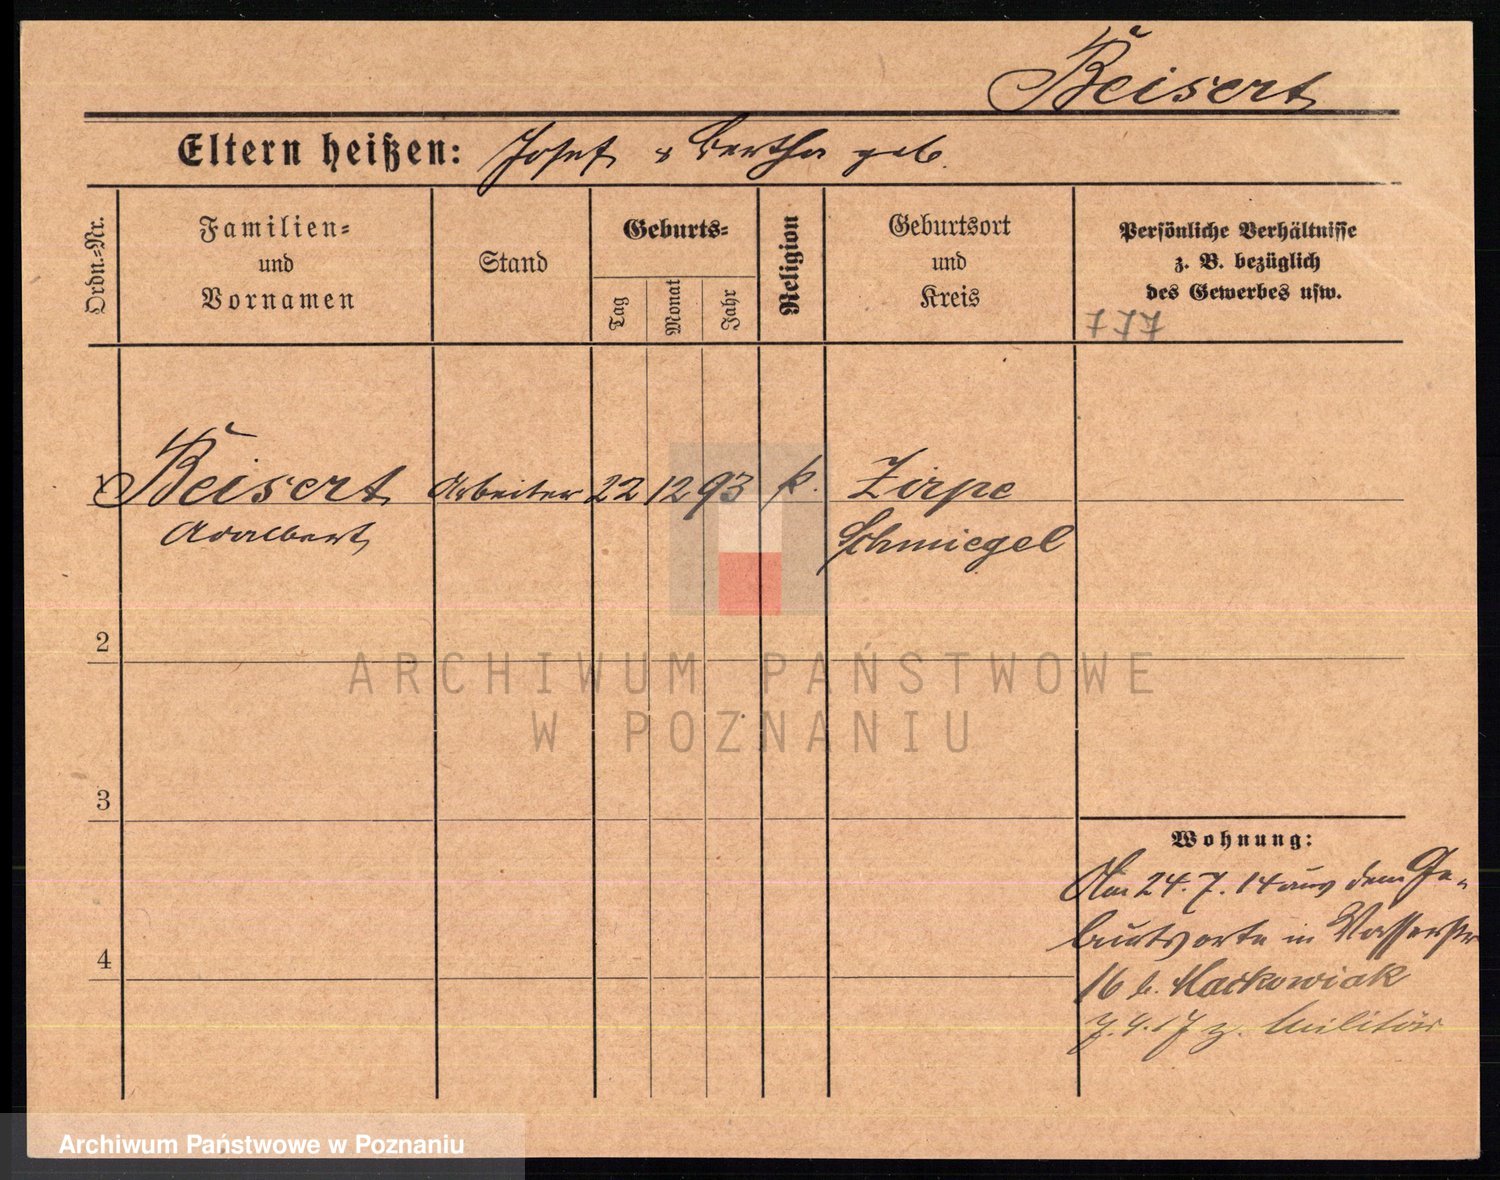 Beisert
Eltern heißen: Josef & Bertha geb.
Ordn.-Nr.
Familien-
und
Vornamen
Stand
Geburts-
Tag
Monat
Jahr
Religion
Geburtsort
und
Kreis
Persönliche Verhältnisse
z. B. bezüglich
des Gewerbes usw.
777
1 Beisert Arbeiter 22 12 93 k. Zirpe
Adalbert Schmiegel
2
3
4
Wohnung:
Am 24.7.14 aus dem Ge-
burtsorte in Wasserstr
16 b. Mackowiak
7.4.17 z. Militär
ARCHIWUM PAŃSTWOWE
W POZNANIU
Archiwum Państwowe w Poznaniu